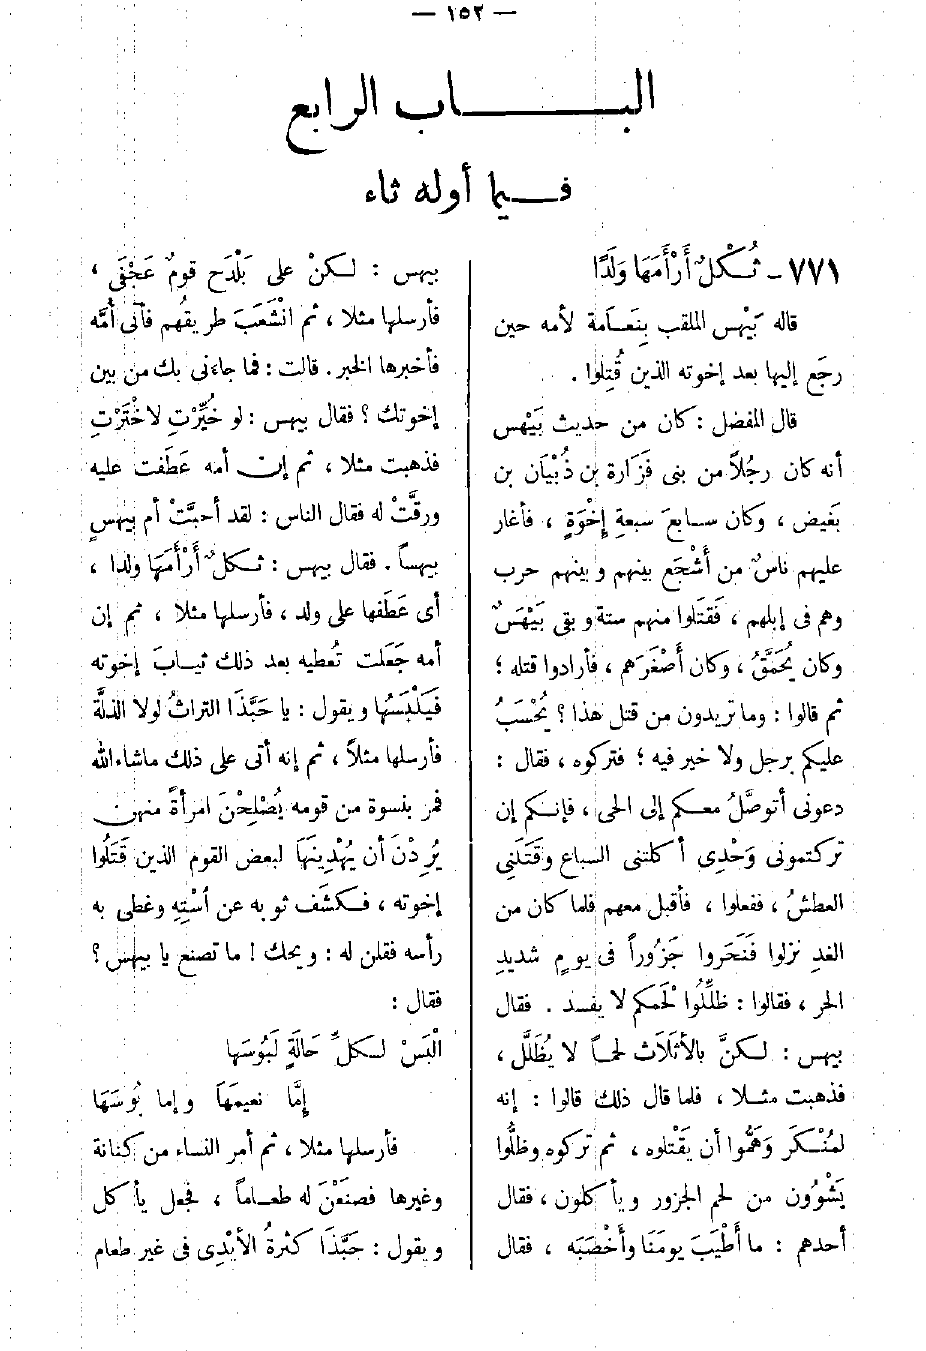 — ١٥٢ —
البـــاب الرابع
فـيما أوله ثاء
٧٧١ - ثُكْلٌ أَرْأَمَهَا وَلَدًا
قاله بَيْهس الملقب بِنَعَامة لأمه حين
رجَع إليها بعد إخوته الذين قُتِلُوا .
قال المفضل : كان من حديث بَيْهس
أنه كان رجُلاً من بنى فَزَارة بن ذُبْيَان بن
بَغَيض ، وكان سابعَ سبعةِ إخْوَةٍ ، فأغار
عليهم ناسٌ من أَشْجَع بينهم وبينهم حرب
وهم فى إبلهم ، فَقتَلوا منهم ستة وبقى بَيْهَسٌ
وكان يُحَمَّقُ ، وكان أصْغَرَهم ، فأرادوا قتله ؛
ثم قالوا : وما تريدون من قتل هذا ؟ يُحْسَبُ
عليكم برجل ولا خير فيه ؛ فتركوه ، فقال :
دعونى أتوصَّلُ معكم إلى الحى ، فإنكم إن
تركتمونى وَحْدِى أكلتنى السباع وقَتَلَنِى
العطشُ ، ففعلوا ، فأقبل معهم فلما كان من
الغدِ نزلوا فَنَحَروا جَزُوراً فى يومٍ شديدِ
الحر ، فقالوا : ظَلِّلُوا لَحْمَكم لا يفسد . فقال
بيهس : لكنَّ بالأثَلاَث لحماً لا يُظَلَّل ،
فذهبت مثلا ، فلما قال ذلك قالوا : إنه
لمُنْكَر وَهَمُّوا أن يَقْتلوه ، ثم تركوه وظلُّوا
يَشْوُون من لحم الجزور ويأكلون ، فقال
أحدهم : ما أَطْيَبَ يومَنَا وأَخْصَبَه ، فقال
بيهس : لكنْ على بَلْدَح قومٌ عَجْفَى ،
فأرسلها مثلا ، ثم انْشَعَبَ طريقُهم فأتى أُمَّه
فأخبرها الخبر . قالت : فما جاءنى بك من بين
إخوتك ؟ فقال بيهس : لو خُيِّرْتِ لاخْتَرْتِ
فذهبت مثلا ، ثم إن أمه عَطَفت عليه
ورقَّتْ له فقال الناس : لقد أحبَّتْ أم بيهسٍ
بيهساً . فقال بيهس : ثكلٌ أَرْأَمَهَا ولدا ،
أى عَطَفها على ولد ، فأرسلها مثلا ، ثم إن
أمه جَعَلت تُعطيه بعد ذلك ثيابَ إخوته
فَيَلْبَسُها ويقول : يا حَبَّذَا التراثُ لولا الذلَّة
فأرسلها مثلاً ، ثم إنه أتى على ذلك ماشاء الله
فمر بنسوة من قومه يُصْلِحْنَ امرأةً منهن
يُرِدْنَ أن يُهْدِينَهَا لبعض القوم الذين قَتَلُوا
إخوته ، فكشَف ثوبه عن اُسْتِهِ وغطى به
رأسه فقلن له : ويحك ! ما تصنع يا بيهس ؟
فقال :
الْبَسْ لكلِّ حَالَةٍ لَبُوسَها
إمَّا نعيمَهَا وإما بُوسَهَا
فأرسلها مثلا ، ثم أمر النساء من كنانة
وغيرها فصنَعْنَ له طعاماً ، فجعل يأكل
ويقول : حَبَّذَا كثرةُ الأيْدِى فى غير طعام